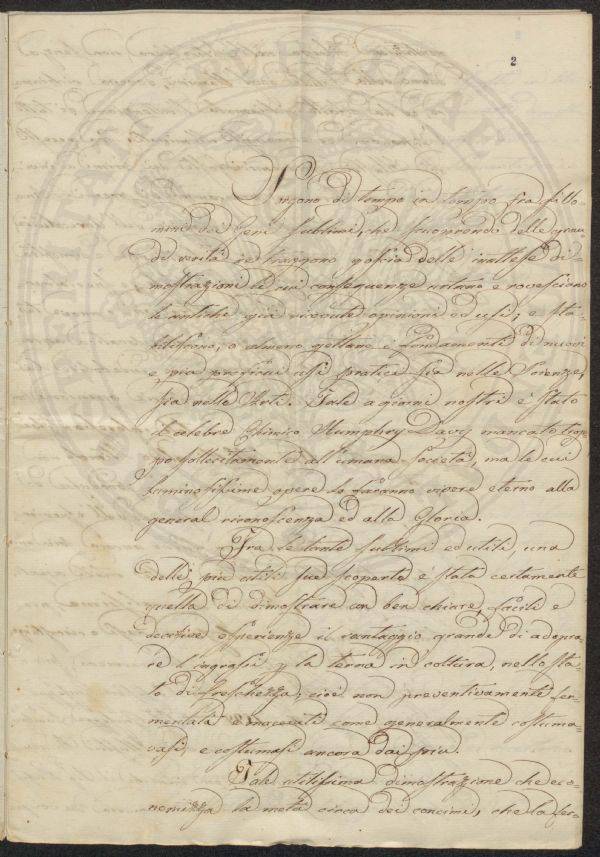 2
Sorgono di tempo in tempo fra gli uo
mini dei Genj sublimi, che scuoprendo delle gran
di verità ne traggono poscia delle inattese di=
mostrazioni le cui conseguenze urtano e rovesciano
le antiche già ricevute opinioni ed usi, e sta=
biliscono, o almeno gettano i fondamenti di nuovi
e più proficui usi pratici sia nelle Scienze,
sia nelle Arti. Tale a giorni nostri è stato
il celebre Chimico Humphry Davy mancato trop
po sollecitamente all'umana Società, ma le cui
luminosissime opere lo faranno vivere eterno alla
general riconoscenza ed alla Gloria.
Fra le tante sublimi ed utili, una
delle più utili sue scoperte è stata certamente
quella di dimostrare con ben chiare, facili e
decisive esperienze il vantaggio grande di adopra
re l'ingrassi p la terra in coltura, nello sta=
to di freschezza, cioè non preventivamente fer=
mentati e macerati come generalmente costuma=
vasi, e costumasi ancora dai più.
Tale utilissima dimostrazione che eco=
nomizza la metà circa dei concimi, che la fer=